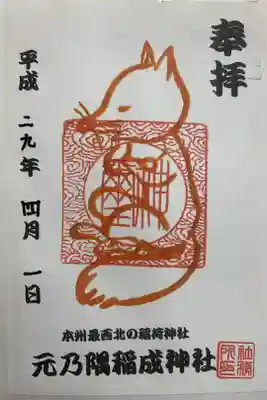 奉拝
平成二九年四月一日
本州最西北の稲荷神社
元乃隅稲成神社
社務所印